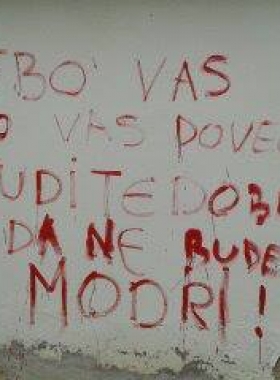 EBO' VAS
O VAS POVE
UDITE DOB
DA NE BUDE
MODRI!